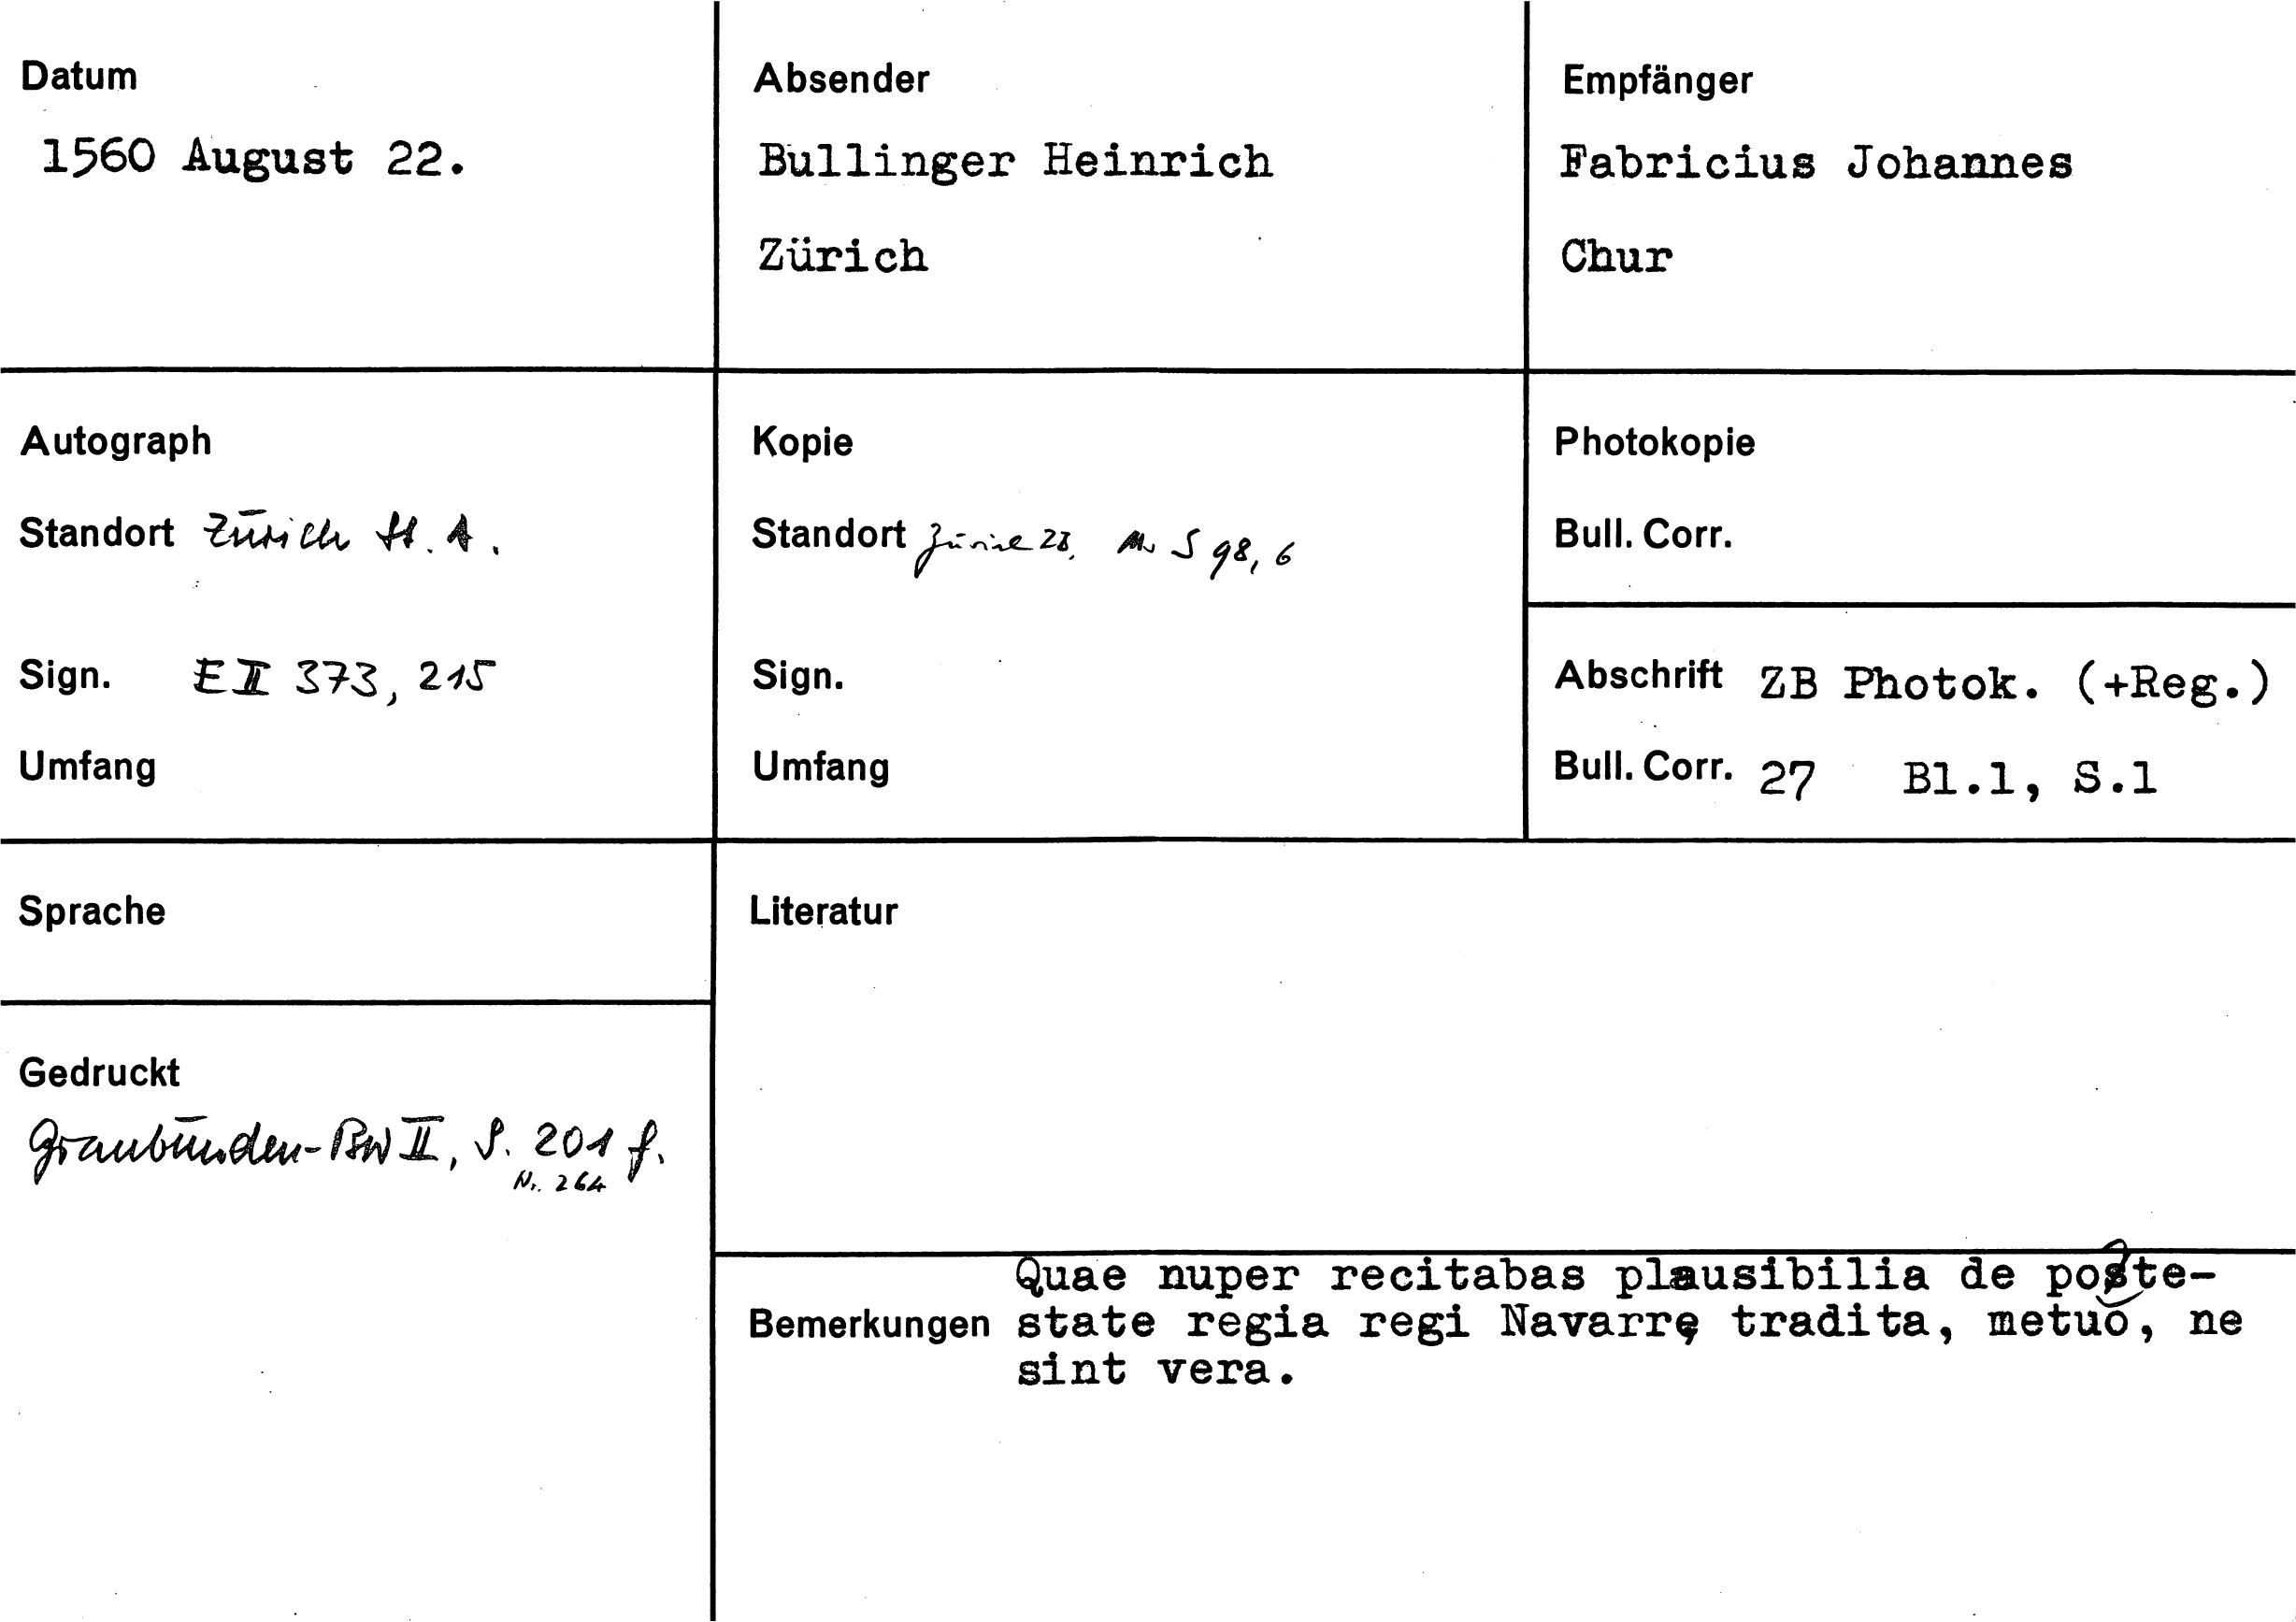 Datum
1560 August 22.
Absender
Bullinger Heinrich
Zürich
Empfänger
Fabricius Johannes
Chur
Autograph
Standort Zürich St. A.
Sign. E II 373, 215
Umfang
Kopie
Standort Zürich ZB, Ms S 98, 6
Sign.
Umfang
Photokopie
Bull. Corr.
Abschrift ZB Photok. (+Reg.)
Bull. Corr. 27 Bl.1, S.1
Sprache
Gedruckt
Graubünden-BW II, S. 201 f.
Nr. 264
Literatur
Bemerkungen
Quae nuper recitabas plausibilia de pote-
state regia regi Navarrę tradita, metuo, ne
sint vera.